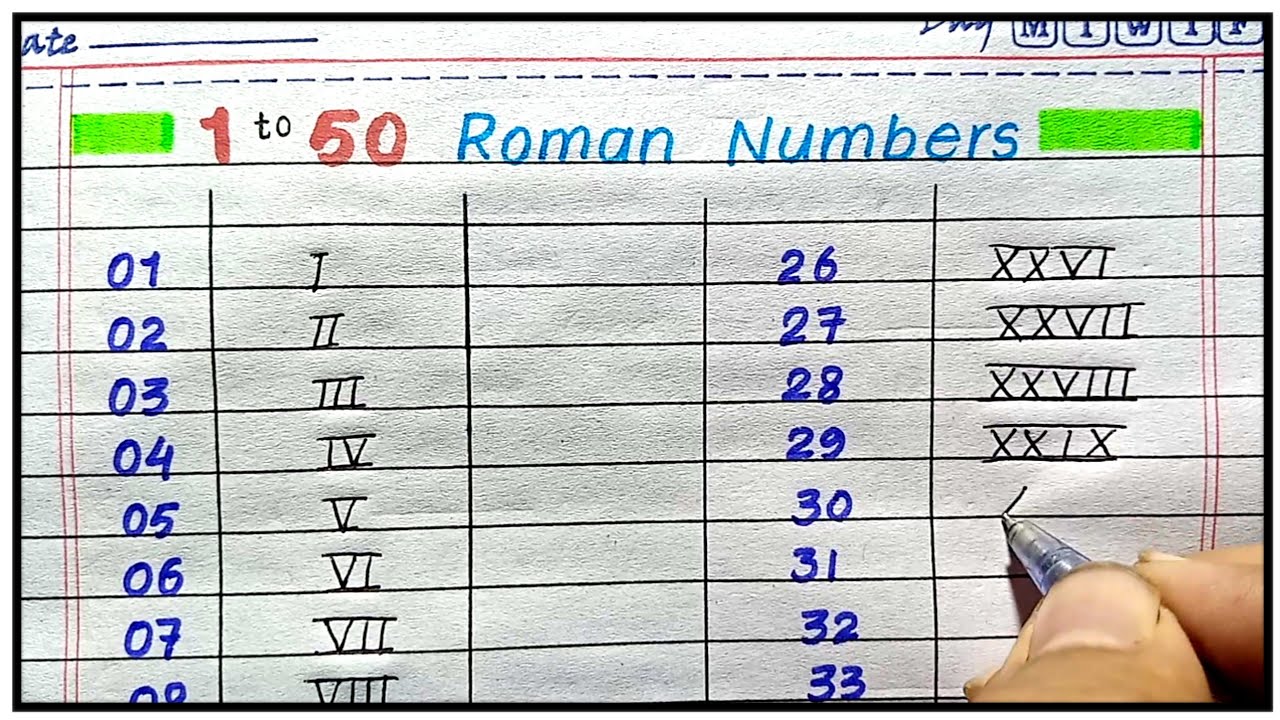 ate Day M T W T F
1 to 50 Roman Numbers
01 I 26 XXVI
02 II 27 XXVII
03 III 28 XXVIII
04 IV 29 XXIX
05 V 30
06 VI 31
07 VII 32
08 VIII 33